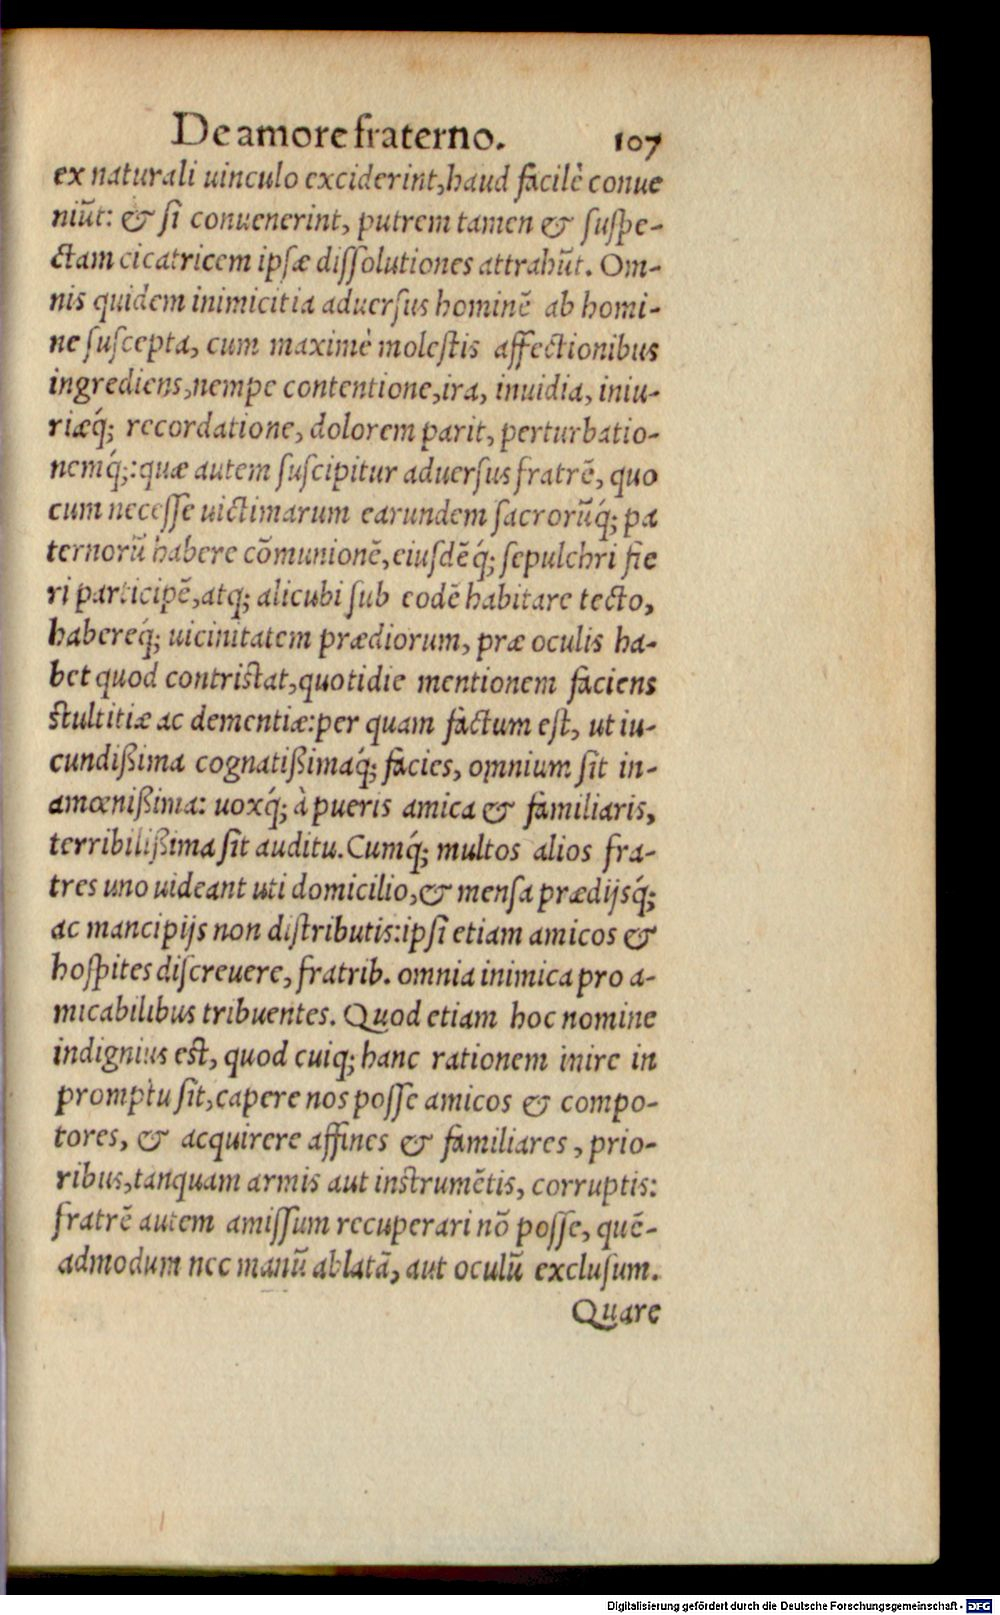 De amore fraterno. 107
ex naturali uinculo exciderint, haud facilè conue
niũt: & si conuenerint, putrem tamen & suspe-
ctam cicatricem ipsæ dissolutiones attrahũt. Om-
nis quidem inimicitia aduersus hominẽ ab homi-
ne suscepta, cum maximè molestis affectionibus
ingrediens, nempe contentione, ira, inuidia, iniu-
riæq́; recordatione, dolorem parit, perturbatio-
nemq́;: quæ autem suscipitur aduersus fratrẽ, quo
cum necesse uictimarum earundem sacrorũq́; pa
ternorũ habere cõmunionẽ, eiusdẽq́; sepulchri fie
ri participẽ, atq; alicubi sub eodẽ habitare tecto,
habereq́; uicinitatem prædiorum, præ oculis ha-
bet quod contristat, quotidie mentionem faciens
stultitiæ ac dementiæ: per quam factum est, ut iu-
cundißima cognatißimaq́; facies, omnium sit in-
amœnißima: uoxq́; à pueris amica & familiaris,
terribilißima sit auditu. Cumq́; multos alios fra-
tres uno uideant uti domicilio, & mensa prædijsq́;
ac mancipijs non distributis: ipsi etiam amicos &
hospites discreuere, fratrib. omnia inimica pro a-
micabilibus tribuentes. Quod etiam hoc nomine
indignius est, quod cuiq; hanc rationem inire in
promptu sit, capere nos posse amicos & compo-
tores, & acquirere affines & familiares, prio-
ribus, tanquam armis aut instrumẽtis, corruptis:
fratrẽ autem amissum recuperari nõ posse, quẽ-
admodum nec manũ ablatã, aut oculũ exclusum.
Quare
Digitalisierung gefördert durch die Deutsche Forschungsgemeinschaft - DFG